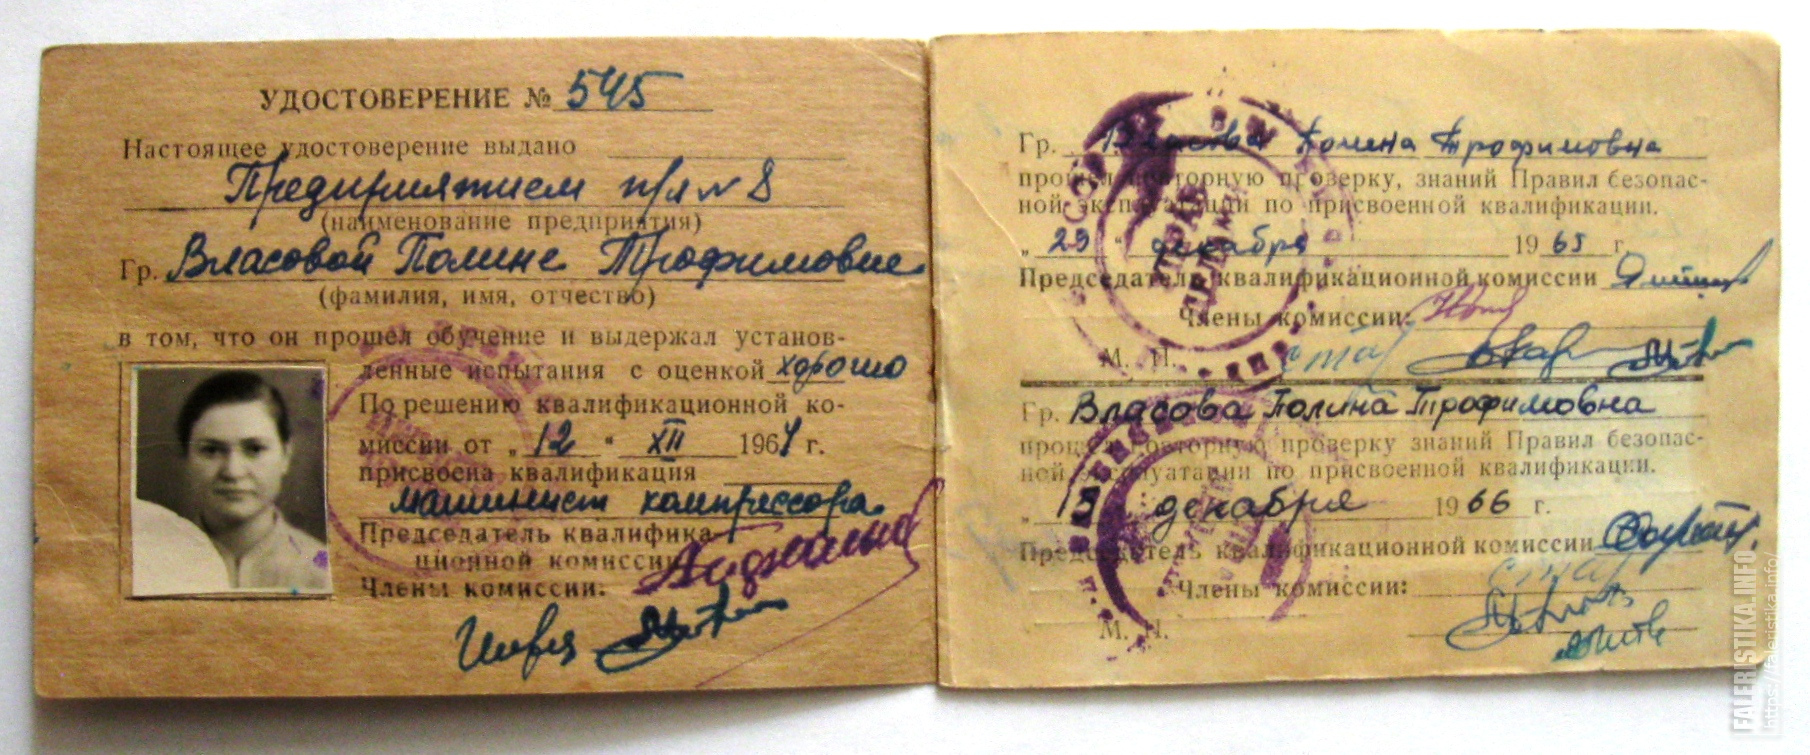 УДОСТОВЕРЕНИЕ № 545
Настоящее удостоверение выдано
Предприятием п/я № 8
(наименование предприятия)
Гр. Власовой Полине Трофимовне
(фамилия, имя, отчество)
в том, что он прошел обучение и выдержал установ-
ленные испытания с оценкой хорошо
По решению квалификационной ко-
миссии от „12" XII 1964 г.
присвоена квалификация
машинист компрессора
Председатель квалифика-
ционной комиссии
Члены комиссии:
Гр. Власова Полина Трофимовна
прошел повторную проверку, знаний Правил безопас-
ной эксплуатации по присвоенной квалификации.
„23" декабря 1965 г.
Председатель квалификационной комиссии
Члены комиссии:
М. П.
Гр. Власова Полина Трофимовна
прошел повторную проверку знаний Правил безопас-
ной эксплуатации по присвоенной квалификации.
декабря 1966 г.
Председатель квалификационной комиссии
Члены комиссии:
М. П.
FALERISTIKA.INFO
https://faleristika.info/